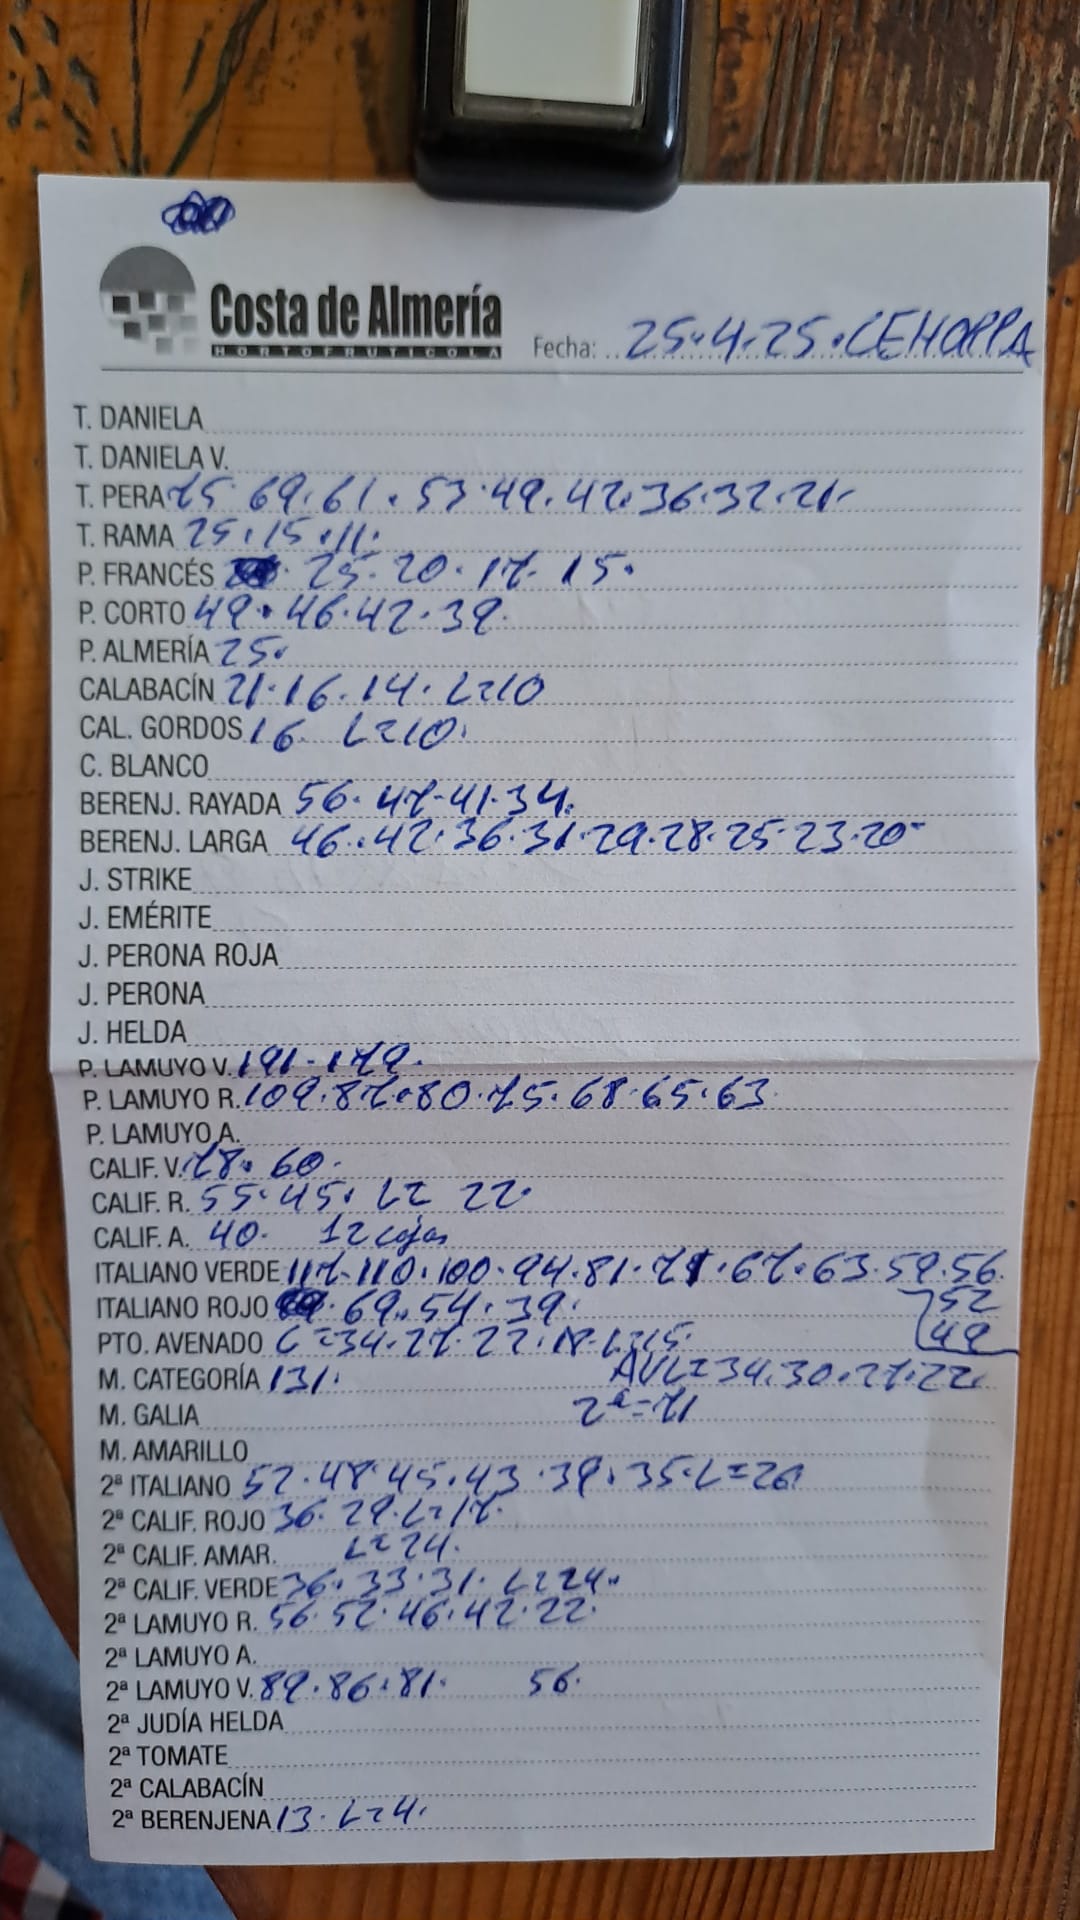 Costa de Almería
HORTOFRUTICOLA
Fecha: 25.4.25.CEHORPA
T. DANIELA
T. DANIELA V.
T. PERA 75.69.61.53.49.42.36.32.21.
T. RAMA 25.15.11.
P. FRANCÉS 25.20.17.15.
P. CORTO 49.46.42.39.
P. ALMERÍA 25.
CALABACÍN 21.16.14.L=10
CAL. GORDOS 16. L=10.
C. BLANCO
BERENJ. RAYADA 56.47.41.34.
BERENJ. LARGA 46.42.36.31.29.28.25.23.20
J. STRIKE
J. EMÉRITE
J. PERONA ROJA
J. PERONA
J. HELDA
P. LAMUYO V. 191.179.
P. LAMUYO R. 109.87.80.75.68.65.63
P. LAMUYO A.
CALIF. V. 78.60.
CALIF. R. 55.45. L= 22.
CALIF. A. 40. 12 cajas
ITALIANO VERDE 117.110.100.94.81.71.67.63.59.56.
52
ITALIANO ROJO 69.54.39.
49
PTO. AVENADO C=34.27.22.18.L=15.
M. CATEGORÍA 131. AVL=34.30.27.22.
M. GALIA 2ª=71
M. AMARILLO
2ª ITALIANO 52.48.45.43.39.35.L=26
2ª CALIF. ROJO 36.29.L=17.
2ª CALIF. AMAR. L=24.
2ª CALIF. VERDE 36.33.31.L=24.
2ª LAMUYO R. 56.52.46.42.22.
2ª LAMUYO A.
2ª LAMUYO V. 89.86.81. 56.
2ª JUDÍA HELDA
2ª TOMATE
2ª CALABACÍN
2ª BERENJENA 13.L=4.